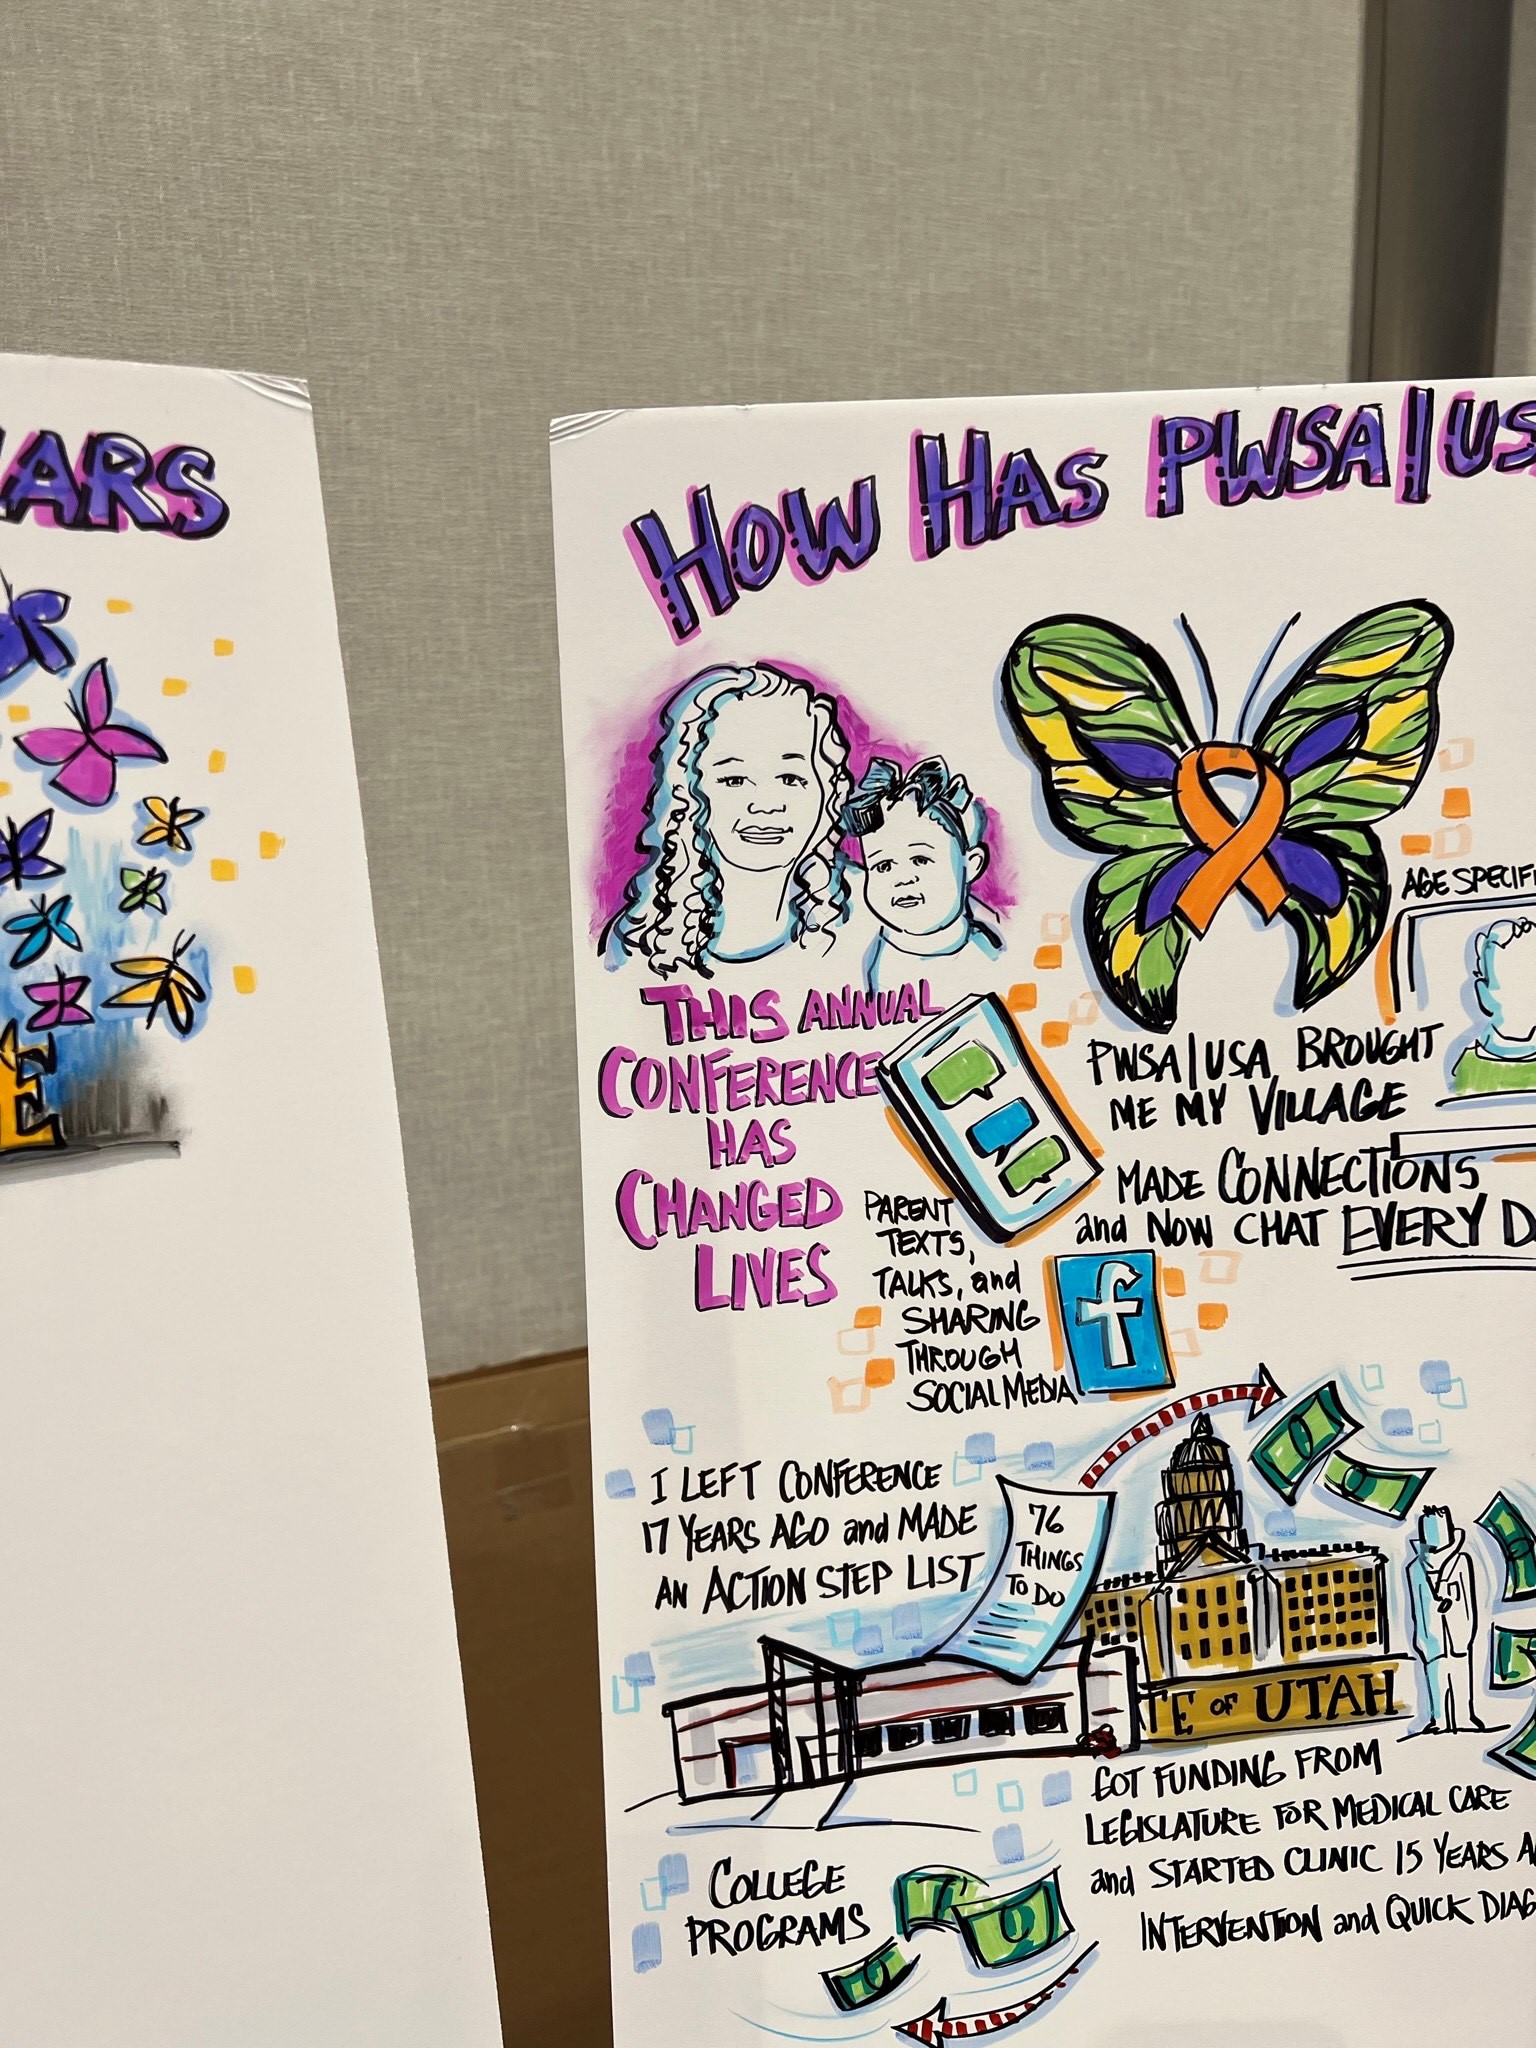 HOW HAS PWSA|US
THIS ANNUAL
CONFERENCE
HAS
CHANGED
LIVES
PARENT
TEXTS,
TALKS, and
SHARING
THROUGH
SOCIAL MEDIA
f
PWSA|USA BROUGHT
ME MY VILLAGE
MADE CONNECTIONS
and NOW CHAT EVERY
AGE SPECIFI
I LEFT CONFERENCE
17 YEARS AGO and MADE
AN ACTION STEP LIST
76
THINGS
TO DO
TE OF UTAH
GOT FUNDING FROM
LEGISLATURE FOR MEDICAL CARE
and STARTED CLINIC 15 YEARS A
INTERVENTION and QUICK DIAG
COLLEGE
PROGRAMS